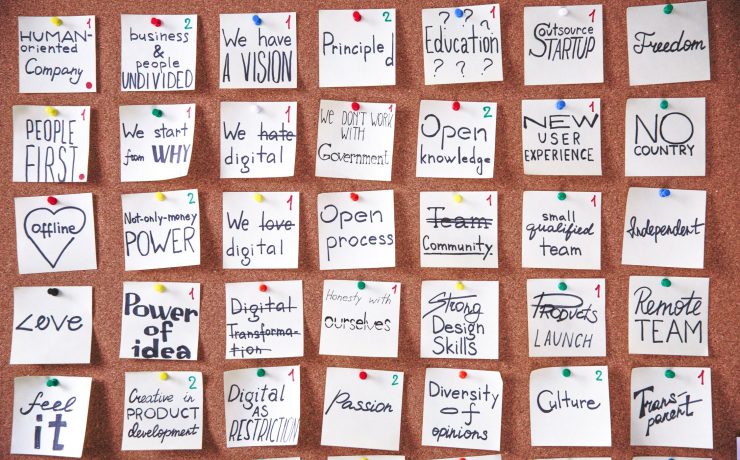 HUMAN-
oriented
Company
2
business
&
people
UNDIVIDED
1
We have
A VISION
2
Principled
1
? ? ?
Education
? ? ?
1
Outsource
STARTUP
Freedom
1
PEOPLE
FIRST
1
We start
from WHY
1
We hate
digital
1
WE DON'T WORK
WITH
Government
2
Open
knowledge
1
NEW
USER
EXPERIENCE
NO
COUNTRY
offline
2
Not-only-money
POWER
1
We love
digital
Open
process
1
Team
Community
1
small
qualified
team
Independent
LOVE
1
Power
of
idea
1
Digital
Transforma-
tion
1
Honesty with
ourselves
Strong
Design
Skills
1
Products
LAUNCH
2
Remote
TEAM
feel
it
2
Creative in
PRODUCT
development
1
Digital
AS
RESTRICTION
2
Passion
Diversity
of
opinions
2
Culture
1
Trans-
parent